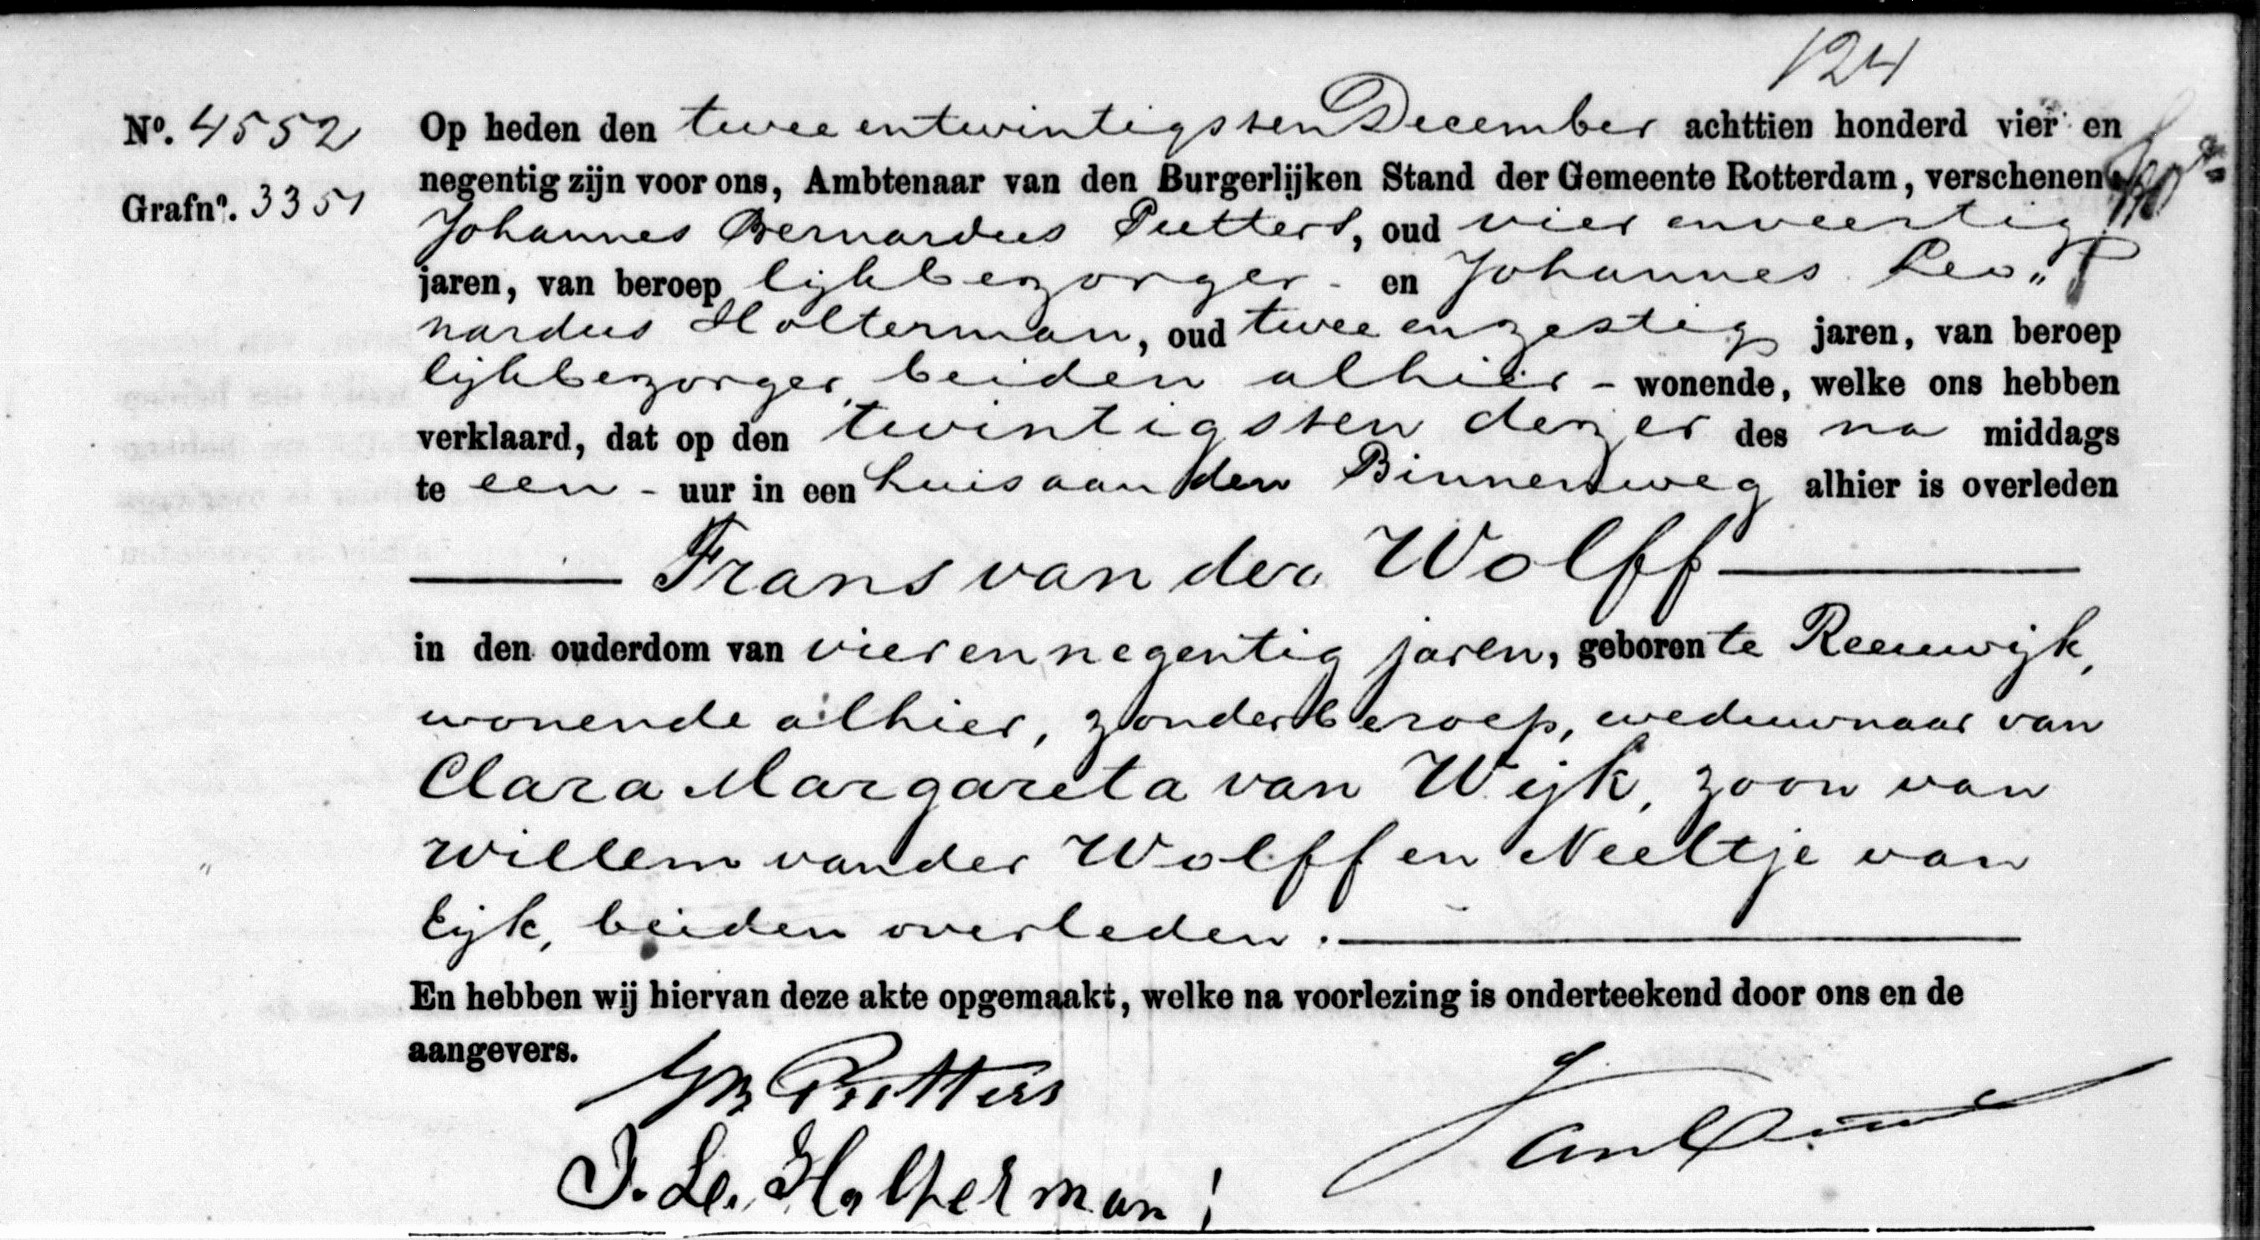 124
No. 4552 Op heden den twee en twintigsten December achttien honderd vier en
Grafno. 3351 negentig zijn voor ons, Ambtenaar van den Burgerlijken Stand der Gemeente Rotterdam, verschenen
Johannes Bernardus Putters, oud vier en veertig
jaren, van beroep lijkbezorger - en Johannes Leo„
nardus Holterman, oud twee en zestig jaren, van beroep
lijkbezorger, beiden alhier - wonende, welke ons hebben
verklaard, dat op den twintigsten dezer des na middags
te een - uur in een huis aan den Binnenweg alhier is overleden
Frans van der Wolff
in den ouderdom van vier en negentig jaren, geboren te Reeuwijk,
wonende alhier, zonder beroep, weduwnaar van
Clara Margareta van Wijk, zoon van
Willem van der Wolff en Neeltje van
Eijk, beiden overleden.
En hebben wij hiervan deze akte opgemaakt, welke na voorlezing is onderteekend door ons en de
aangevers.
JB Putters
J. Le. Holterman!